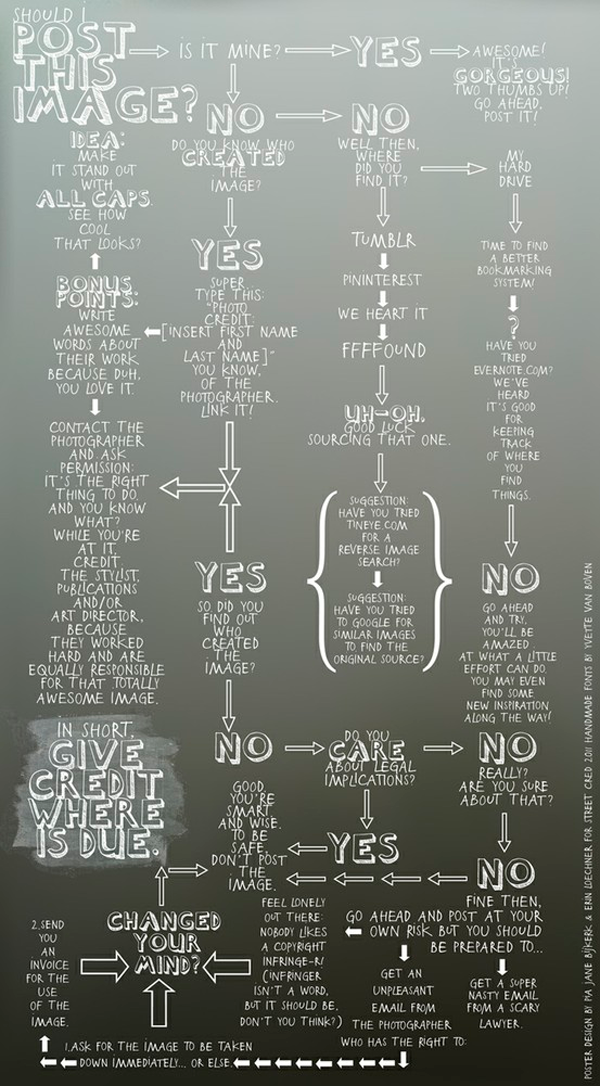 SHOULD I
POST
THIS
IMAGE?
IS IT MINE?
YES
AWESOME!
IT'S
GORGEOUS!
TWO THUMBS UP!
GO AHEAD,
POST IT!
NO
DO YOU KNOW WHO
CREATED
THE
IMAGE?
NO
WELL THEN,
WHERE
DID YOU
FIND IT?
MY
HARD
DRIVE
TIME TO FIND
A BETTER
BOOKMARKING
SYSTEM!
?
HAVE YOU
TRIED
EVERNOTE.COM?
WE'VE
HEARD
IT'S GOOD
FOR
KEEPING
TRACK
OF WHERE
YOU
FIND
THINGS.
NO
GO AHEAD
AND TRY,
YOU'LL BE
AMAZED
AT WHAT A LITTLE
EFFORT CAN DO.
YOU MAY EVEN
FIND SOME
NEW INSPIRATION
ALONG THE WAY!
TUMBLR
PININTEREST
WE HEART IT
FFFFOUND
UH-OH,
GOOD LUCK
SOURCING THAT ONE.
SUGGESTION:
HAVE YOU TRIED
TINEYE.COM
FOR A
REVERSE IMAGE
SEARCH?
SUGGESTION:
HAVE YOU TRIED
TO GOOGLE FOR
SIMILAR IMAGES
TO FIND THE
ORIGINAL SOURCE?
YES
SUPER,
TYPE THIS:
"PHOTO
CREDIT:
[INSERT FIRST NAME
AND
LAST NAME]"
YOU KNOW,
OF THE
PHOTOGRAPHER.
LINK IT!
IDEA:
MAKE
IT STAND OUT
WITH
ALL CAPS.
SEE HOW
COOL
THAT LOOKS?
BONUS
POINTS:
WRITE
AWESOME
WORDS ABOUT
THEIR WORK
BECAUSE DUH,
YOU LOVE IT.
CONTACT THE
PHOTOGRAPHER
AND ASK
PERMISSION:
IT'S THE RIGHT
THING TO DO,
AND YOU KNOW
WHAT?
WHILE YOU'RE
AT IT,
CREDIT
THE STYLIST,
PUBLICATIONS
AND/OR
ART DIRECTOR,
BECAUSE
THEY WORKED
HARD AND ARE
EQUALLY RESPONSIBLE
FOR THAT TOTALLY
AWESOME IMAGE.
YES
SO, DID YOU
FIND OUT
WHO
CREATED
THE
IMAGE?
NO
DO YOU
CARE
ABOUT LEGAL
IMPLICATIONS?
NO
REALLY?
ARE YOU SURE
ABOUT THAT?
YES
GOOD,
YOU'RE
SMART
AND WISE.
TO BE
SAFE,
DON'T POST
THE
IMAGE.
NO
FINE THEN,
GO AHEAD AND POST AT YOUR
OWN RISK BUT YOU SHOULD
BE PREPARED TO...
GET A SUPER
NASTY EMAIL
FROM A SCARY
LAWYER.
GET AN
UNPLEASANT
EMAIL FROM
THE PHOTOGRAPHER
WHO HAS THE RIGHT TO:
FEEL LONELY
OUT THERE:
NOBODY LIKES
A COPYRIGHT
INFRINGE-R!
(INFRINGER
ISN'T A WORD,
BUT IT SHOULD BE,
DON'T YOU THINK?)
1.ASK FOR THE IMAGE TO BE TAKEN
DOWN IMMEDIATELY... OR ELSE.
2.SEND
YOU
AN
INVOICE
FOR THE
USE
OF THE
IMAGE.
CHANGED
YOUR
MIND?
IN SHORT,
GIVE
CREDIT
WHERE
IS DUE.
POSTER DESIGN BY PIA JANE BIJKERK & ERIN LOECHNER FOR STREET CRED 2011 HANDMADE FONTS BY YVETTE VAN BOVEN